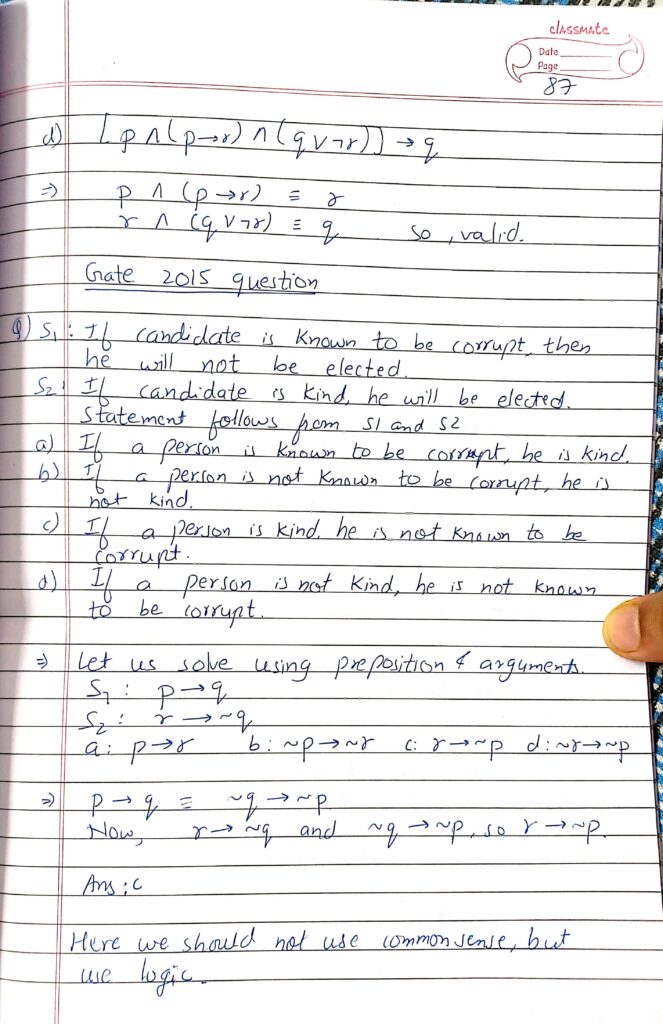 classmate
Date
Page
87
d) [p ∧ (p→r) ∧ (q ∨ ¬r)] → q
⇒ p ∧ (p→r) ≡ r
r ∧ (q ∨ ¬r) ≡ q so, valid.
Gate 2015 question
Q) S1: If candidate is known to be corrupt, then
he will not be elected.
S2: If candidate is kind, he will be elected.
Statement follows from S1 and S2
a) If a person is known to be corrupt, he is kind.
b) If a person is not known to be corrupt, he is
not kind.
c) If a person is kind, he is not known to be
corrupt.
d) If a person is not kind, he is not known
to be corrupt.
⇒ Let us solve using preposition & arguments.
S1: p→q
S2: r→~q
a: p→r b: ~p→~r c: r→~p d: ~r→~p
⇒ p→q ≡ ~q→~p
Now, r→~q and ~q→~p, so r→~p.
Ans: c
Here we should not use common sense, but
use logic.